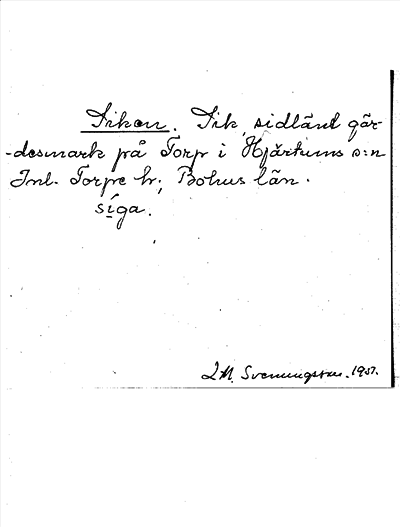 Siken. Sik, sidlänt gär-
-desmark på Torp i Hjärtums s:n
Inl. Torpe hr, Bohus län.
síga.
J.M. Svenungsson. 1937.